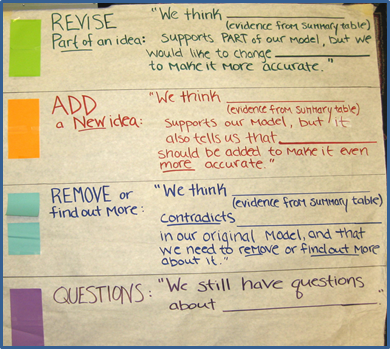 REVISE
Part of an idea:
"We think ____________
(evidence from summary table)
supports PART of our model, but we
would like to change ____________
to make it more accurate."
ADD
a New idea:
"We think ____________
(evidence from summary table)
supports our model, but it
also tells us that ____________
should be added to make it even
more accurate."
REMOVE or
find out more:
"We think ____________
(evidence from summary table)
contradicts ____________
in our original model, and that
we need to remove or find out more
about it."
QUESTIONS:
"We still have questions
about ____________"